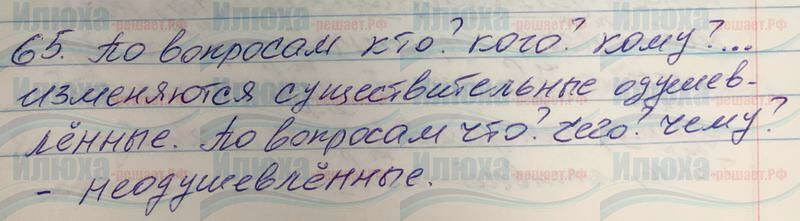 65. По вопросам кто? кого? кому?...
изменяются существительные одушев-
лённые. По вопросам что? чего? чему?
- неодушевлённые.